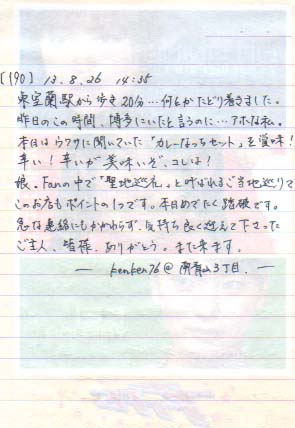 [190] 13.8.26 14:35
東室蘭駅から歩き20分…何とかたどり着きました。
昨日のこの時間、博多にいたと言うのに…アホな私。
本日はウワサに聞いていた"カレーなっちセット"を賞味!
辛い!辛いが美味いぞ、コレは!
娘。Fanの中で『聖地巡礼』と呼ばれるご当地巡りで
このお店もポイントの1つです。本日めでたく踏破です。
急な連絡にもかかわらず、気持ち良く迎えて下さった
ご主人、皆様、ありがとう。また来ます。
— kenken76@南青山3丁目. —